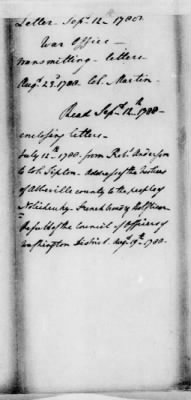 Letter Sepr. 12th 1788.
War Office—
transmitting letters
Augt. 23d 1788. Col. Martin—
Read Sepr. 12th 1788—
enclosing letters—
July 12th 1788. from Robt. Anderson
to Col. Sipton. Address of the Justices
of Abbeville county to the people of
Nolichucky— French broad &
Result of the Council of Officers of
Washington District. Augt. 19th 1788.